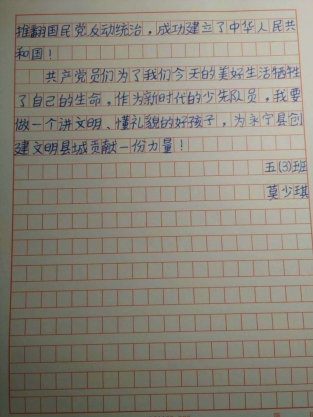 推翻国民党反动统治，成功建立了中华人民共
和国！
共产党员们为了我们今天的美好生活牺牲
了自己的生命，作为新时代的少先队员，我要
做一个讲文明、懂礼貌的好孩子，为永宁县创
建文明县城贡献一份力量！
五(3)班
莫少琪